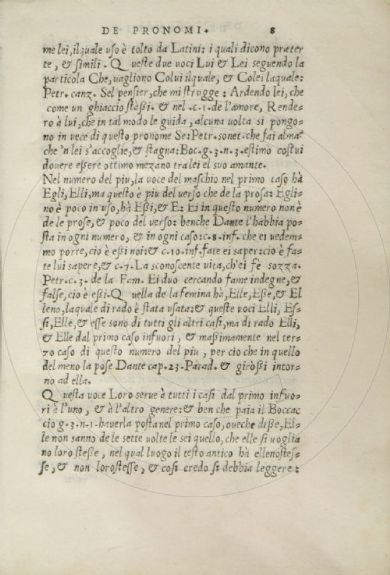 DE PRONOMI. 8
me lei, il quale uso è tolto da Latini: i quali dicono præter
te, & simili. Queste due voci Lui & Lei seguendo la
particola Che, vagliono Colui il quale, & Colei laquale:
Petr. canz. Sel pensier, che mi strugge: Ardendo lei, che
come un ghiaccio stèssi. & nel .c.1. de l'amore, Rende-
ro à lui, che in tal modo le guida, alcuna volta si pongo-
no in vece di questo pronome Se: Petr. sonet. che fai alma?
che 'n lei s'accoglie, & stagna: Boc. g. 3. n. 3. estimo costui
dovere essere ottimo mezano tra lei el suo amante.
Nel numero del piu, la voce del maschio nel primo caso hà
Egli, Elli, ma questo è piu del verso che de la prosa: Egli-
no è poco in uso, hà Essi, & E: Ei in questo numero non è
de le prose, & poco del verso: benche Dante l'habbia po-
sta in ogni numero, & in ogni caso: c. 8. inf. che ei vedem-
mo porre, cio è essi noi: & c. 10. inf. fate ei saper: cio è fa-
te lui sapere, & c. 7. La sconoscente vita, ch'ei fe sozza.
Petr. c. 3. de la Fam. Ei duo cercando fame indegne, &
false, cio è essi. Quella de la femina hà, Elle, Esse, & El
leno, laquale di rado è stata usata: & queste voci Elli, Es-
si, Elle, & esse sono di tutti gli altri casi, ma di rado Elli,
& Elle dal primo caso infuori, & massimamente nel ter-
zo caso di questo numero del piu, per cio che in quello
del meno la pose Dante cap. 23. Parad. & giròssi intor-
no ad ella.
Questa voce Loro serve à tutti i casi dal primo infuo-
ri à l'uno, & à l'altro genere: & ben che paia il Boccac
cio g. 3. n. 1. haverla posta nel primo caso, ove che disse, El-
le non sanno de le sette volte le sei quello, che elle si voglia
no loro stesse, nel qual luogo il testo antico hà ellenostes-
se, & non lorostesse, & cosi credo si debbia leggere: